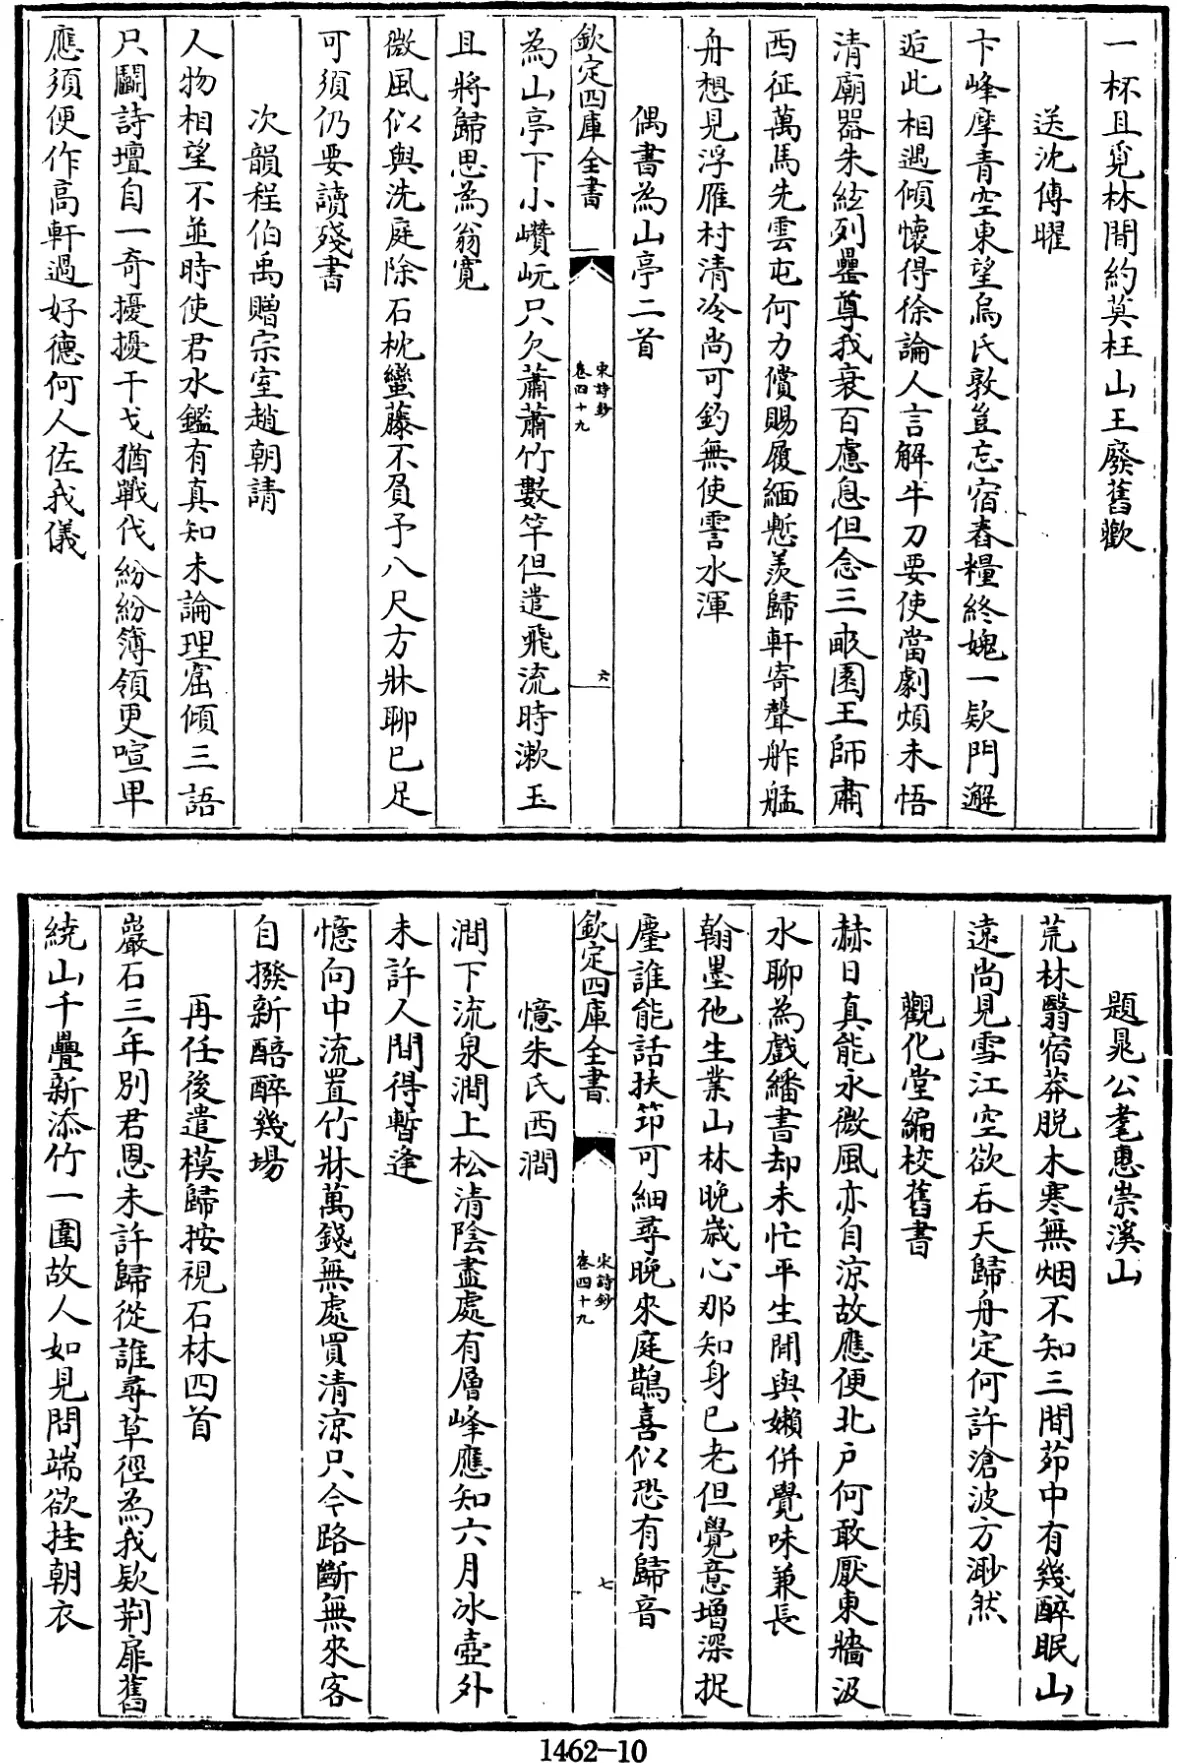 一杯且覓林間約莫枉山王廢舊歡
送沈傅曜
卞峰摩青空東望烏氏敦豈忘宿舂糧終媿一欵門邂
逅此相遇傾懷得徐論人言解牛刀要使當劇煩未悟
清廟器朱絃列罍尊我衰百慮息但念三畝園王師肅
西征萬馬先雲屯何力償賜履緬慙羨歸軒寄聲舴艋
舟想見浮雁村清冷尚可釣無使霅水渾
偶書為山亭二首
欽定四庫全書
宋詩鈔
卷四十九
六
為山亭下小巑岏只欠蕭蕭竹數竿但遣飛流時漱玉
且將歸思為翁寛
微風似與洗庭除石枕蠻藤不負予八尺方牀聊已足
可須仍要讀殘書
次韻程伯禹贈宗室趙朝請
人物相望不並時使君水鑑有真知未論理窟傾三語
只鬭詩壇自一奇擾擾干戈猶戰伐紛紛簿領更喧卑
應須便作高軒過好德何人佐我儀
題晁公耄惠崇溪山
荒林翳宿莽脱木寒無烟不知三間茆中有幾醉眠山
遠尚見雪江空欲吞天歸舟定何許滄波方渺然
觀化堂編校舊書
赫日真能永微風亦自涼故應便北戶何敢厭東牆汲
水聊為戲繙書却未忙平生閒與嬾併覺味兼長
翰墨他生業山林晩歲心那知身已老但覺意增深捉
麈誰能話扶笻可細尋晩來庭鵲喜似恐有歸音
欽定四庫全書
宋詩鈔
卷四十九
七
憶朱氏西澗
澗下流泉澗上松清陰盡處有層峰應知六月冰壺外
未許人間得暫逢
憶向中流置竹牀萬錢無處買清涼只今路斷無來客
自撥新醅醉幾場
再任後遣模歸按視石林四首
巖石三年別君恩未許歸從誰尋草徑為我欵荆扉舊
繞山千疊新添竹一圍故人如見問端欲挂朝衣
1462-10